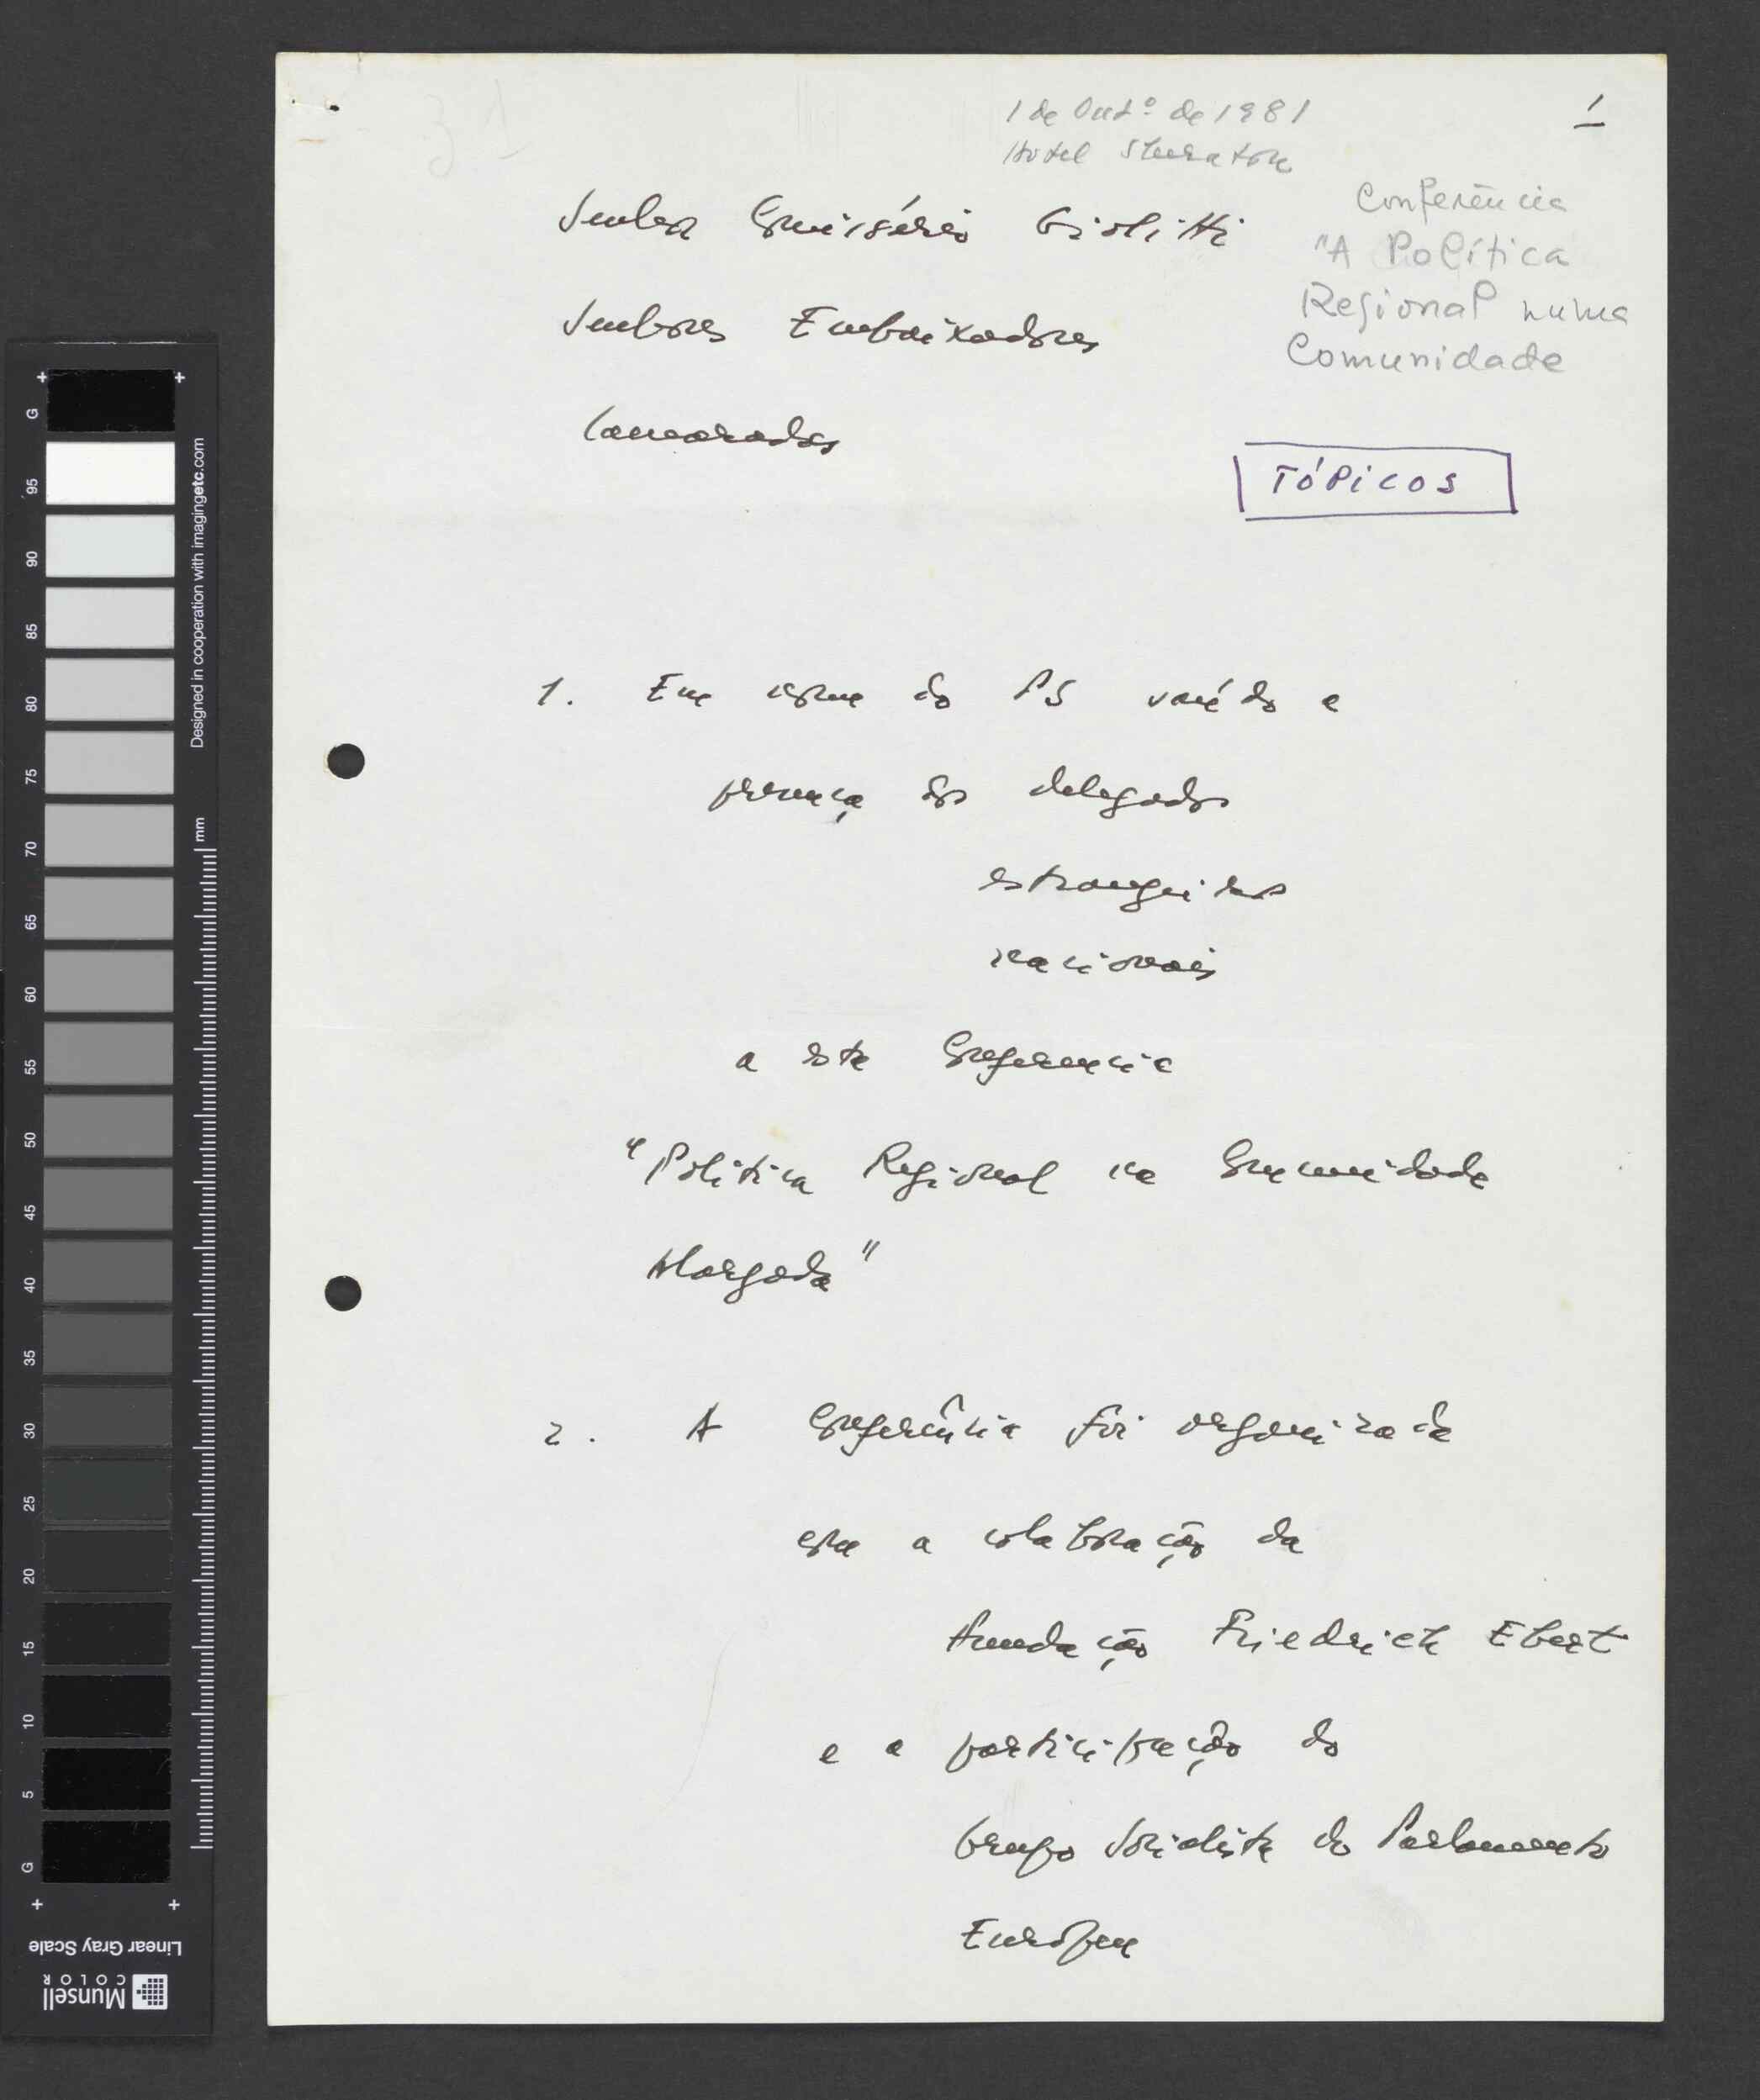 1 de Outº de 1981
Hotel Sheraton
1
Conferência
"A Política
Regional numa
Comunidade
TÓPICOS
Senhor Comissário Giolitti
Senhores Embaixadores
Camaradas
1. Em nome do PS saúdo a
presença dos delegados
estrangeiros
nacionais
a esta Conferencia
"Politica Regional na Comunidade
Alargada"
2. A Conferência foi organizada
com a colaboração da
Fundação Friedrich Ebert
e a participação do
Grupo Socialista do Parlamento
Europeu
G
95
90
85
80
75
70
65
60
55
50
45
40
35
30
25
20
15
10
5
G
mm
Designed in cooperation with imagingetc.com
Linear Gray Scale
Munsell
COLOR